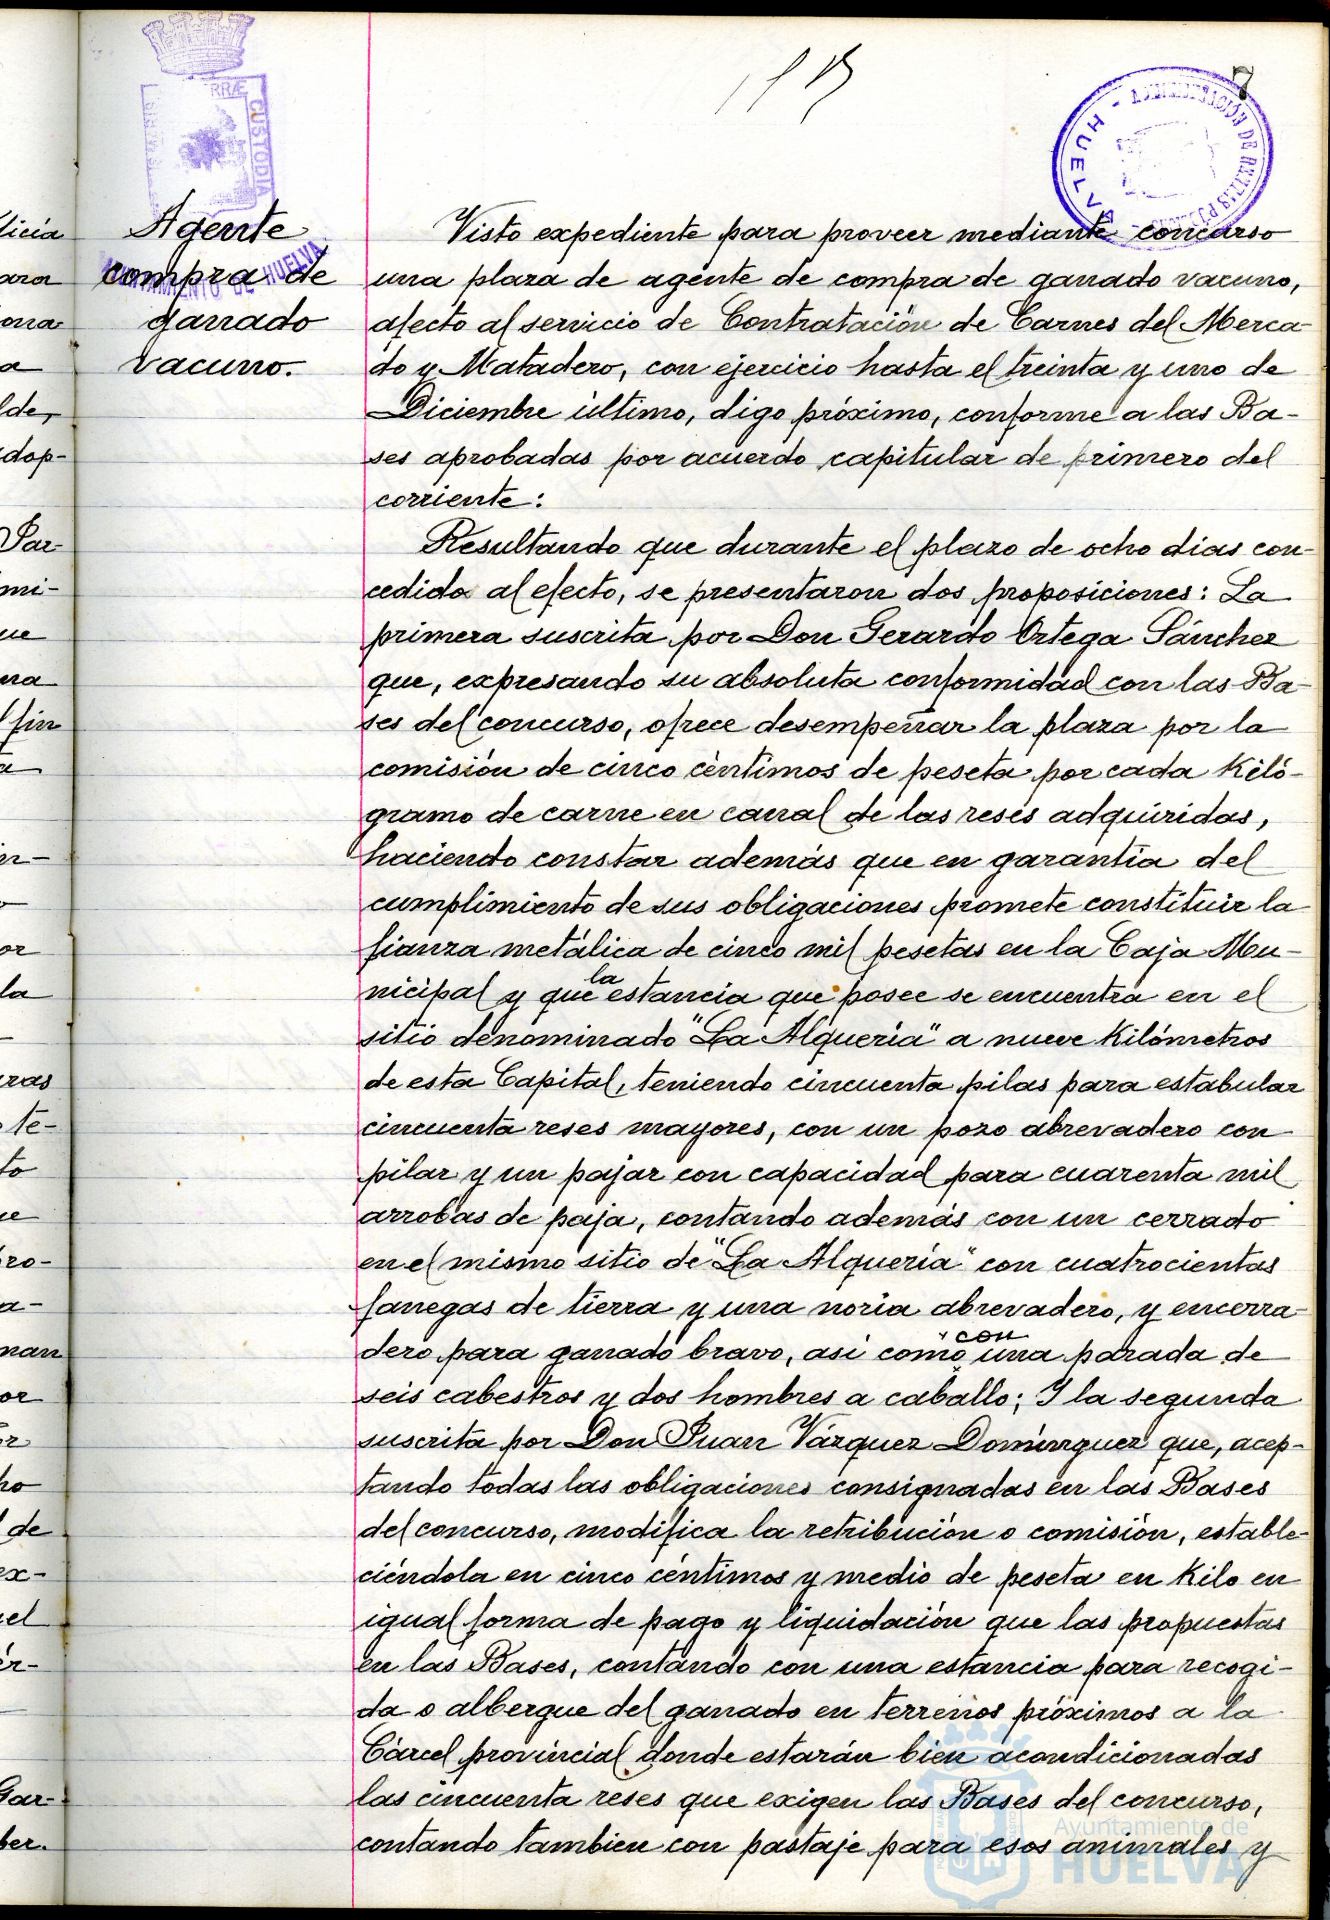 7
RRÆ
CUSTODIA
AYUNTAMIENTO DE HUELVA
ADMINISTRACIÓN DE RENTAS PÚBLICAS
- HUELVA -
Agente
compra de
ganado
vacuno.
Visto expediente para proveer mediante concurso
una plaza de agente de compra de ganado vacuno,
afecto al servicio de Contratación de Carnes del Merca-
do y Matadero, con ejercicio hasta el treinta y uno de
Diciembre último, digo próximo, conforme a las Ba-
ses aprobadas por acuerdo capitular de primero del
corriente:
Resultando que durante el plazo de ocho días con-
cedido al efecto, se presentaron dos proposiciones: La
primera suscrita por Don Gerardo Ortega Sánchez
que, expresando su absoluta conformidad con las Ba-
ses del concurso, ofrece desempeñar la plaza por la
comisión de cinco céntimos de peseta por cada Kiló-
gramo de carne en canal de las reses adquiridas,
haciendo constar además que en garantía del
cumplimiento de sus obligaciones promete constituir la
fianza metálica de cinco mil pesetas en la Caja Mu-
nicipal y que la estancia que posee se encuentra en el
sitio denominado "La Alquería" a nueve Kilómetros
de esta Capital, teniendo cincuenta pilas para estabular
cincuenta reses mayores, con un pozo abrevadero con
pilar y un pajar con capacidad para cuarenta mil
arrobas de paja, contando además con un cerrado
en el mismo sitio de "La Alquería" con cuatrocientas
fanegas de tierra y una noria abrevadero, y encerra-
dero para ganado bravo, así como con una parada de
seis cabestros y dos hombres a caballo; Y la segunda
suscrita por Don Juan Vázquez Domínguez que, acep-
tando todas las obligaciones consignadas en las Bases
del concurso, modifica la retribución o comisión, estable-
ciéndola en cinco céntimos y medio de peseta en Kilo en
igual forma de pago y liquidación que las propuestas
en las Bases, contando con una estancia para recogi-
da o albergue del ganado en terrenos próximos a la
Cárcel provincial donde estarán bien acondicionadas
las cincuenta reses que exigen las Bases del concurso,
contando tambien con pastaje para esos animales y
Ayuntamiento de
HUELVA